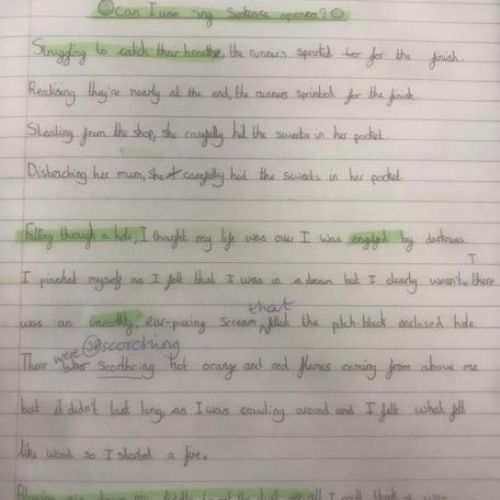 Can I use -ing sentence openers?
Struggling to catch their breathe, the runners sprinted for the finish.
Realising they're nearly at the end, the runners sprinted for the finish.
Stealing from the shop, she carefully hid the sweets in her pocket.
Disteaching her mum, she carefully hid the sweets in her pocket
Falling through a hole, I thought my life was over I was engulfed by darkness.
I pinched myself as I felt that I was in a dream but I clearly wasn't. there
T
was an unearthly, ear-piecing scream filled the pitch-black enclosed hole
that
There was scorthcing hot orange and red flames coming from above me
were sp scorching
but it didn't last long, as I was crawling around and I felt what felt
like wood so I started a fire.